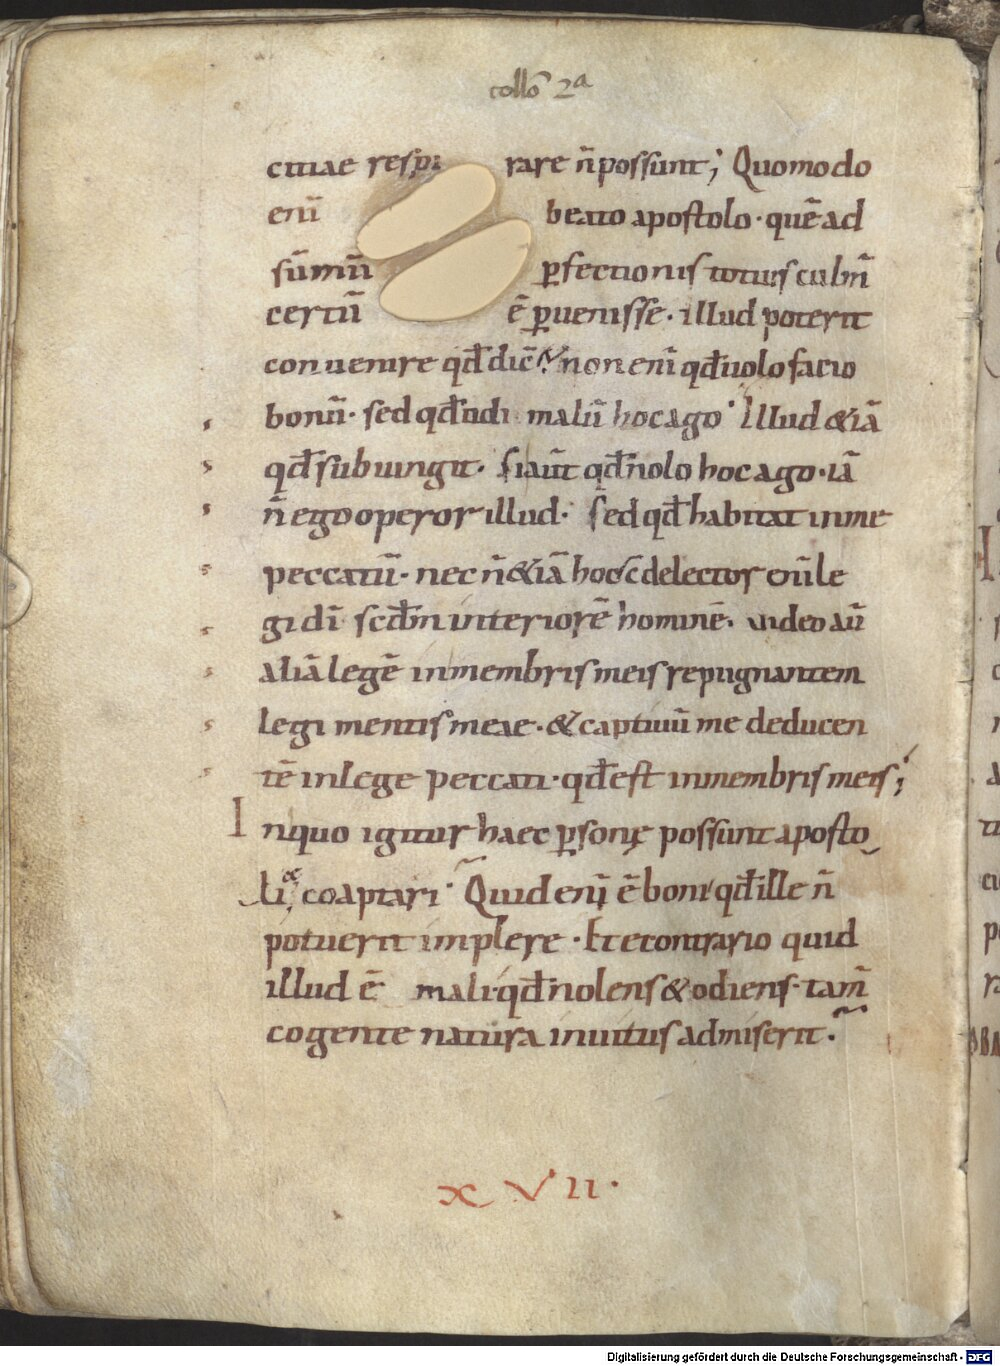 collo᷑ 2ᵃ
citiae respi rare n̄ possunt; Quomodo
enī beato apostolo · quē ad
sūmū ꝑfectionis totius culm̄
certū ē ꝑuenisse · illud poterit
conuenire qđ dic̄ non enī qđ uolo facio
bonū · sed qđ odi malū hoc ago · Illud &iā
qđ subiungit · si aut̄ qđ nolo hoc ago · iā
n̄ ego operor illud · sed qđ habitat in me
peccatū · nec n̄ &iā hoc delector le
gi dī scđm interiorē hominē · uideo aū
aliā legē in membris meis repugnantem
legi mentis meae · & captiuū me deducen
tē in lege peccati · qđ est in membris meis;
In quo igitur haec ꝑsonę possunt aposto
licę coaptari · Quid enī ē boni qđ ille n̄
potuerit implere · Et e contrario quid
illud ē mali · qđ nolens & odiens · tam̄
cogente natura inuitus admiserit ·
XVII ·
Digitalisierung gefördert durch die Deutsche Forschungsgemeinschaft - DFG